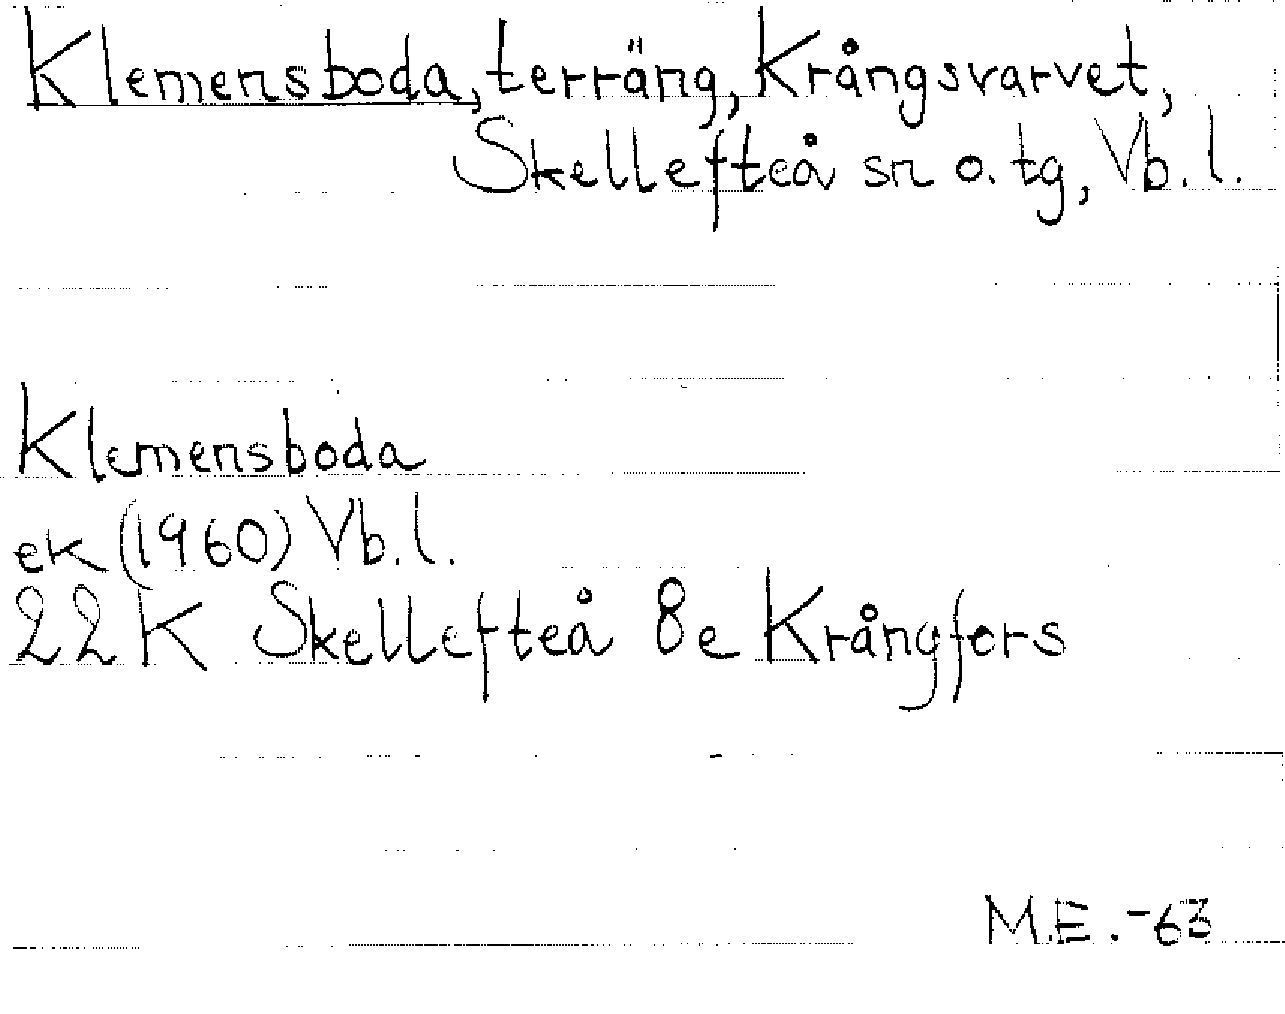 Klemensboda, terräng, Krångsvarvet,
Skellefteå sn o. tg, Vb. l.
Klemensboda
ek (1960) Vb. l.
22K Skellefteå 8e Krångfors
M.E. -63